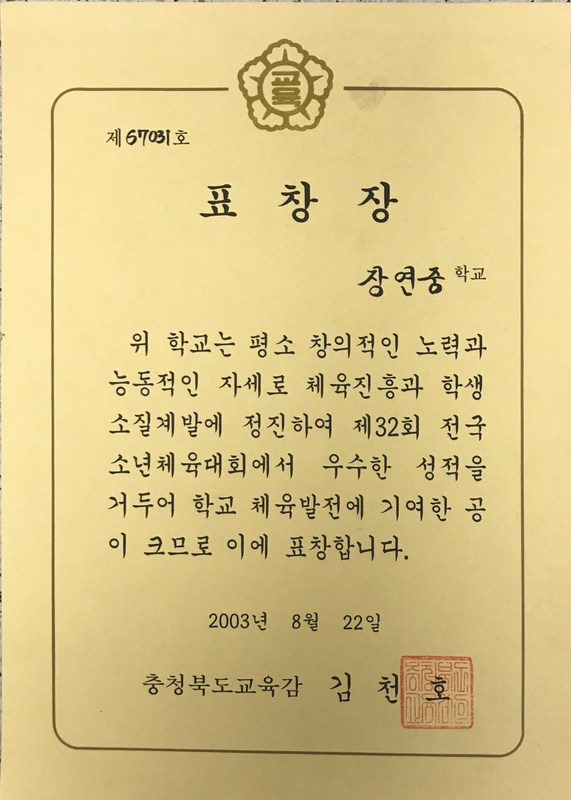 교육
제67031호
표 창 장
장연중 학교
위 학교는 평소 창의적인 노력과
능동적인 자세로 체육진흥과 학생
소질계발에 정진하여 제32회 전국
소년체육대회에서 우수한 성적을
거두어 학교 체육발전에 기여한 공
이 크므로 이에 표창합니다.
2003년 8월 22일
충청북도교육감 김 천 호